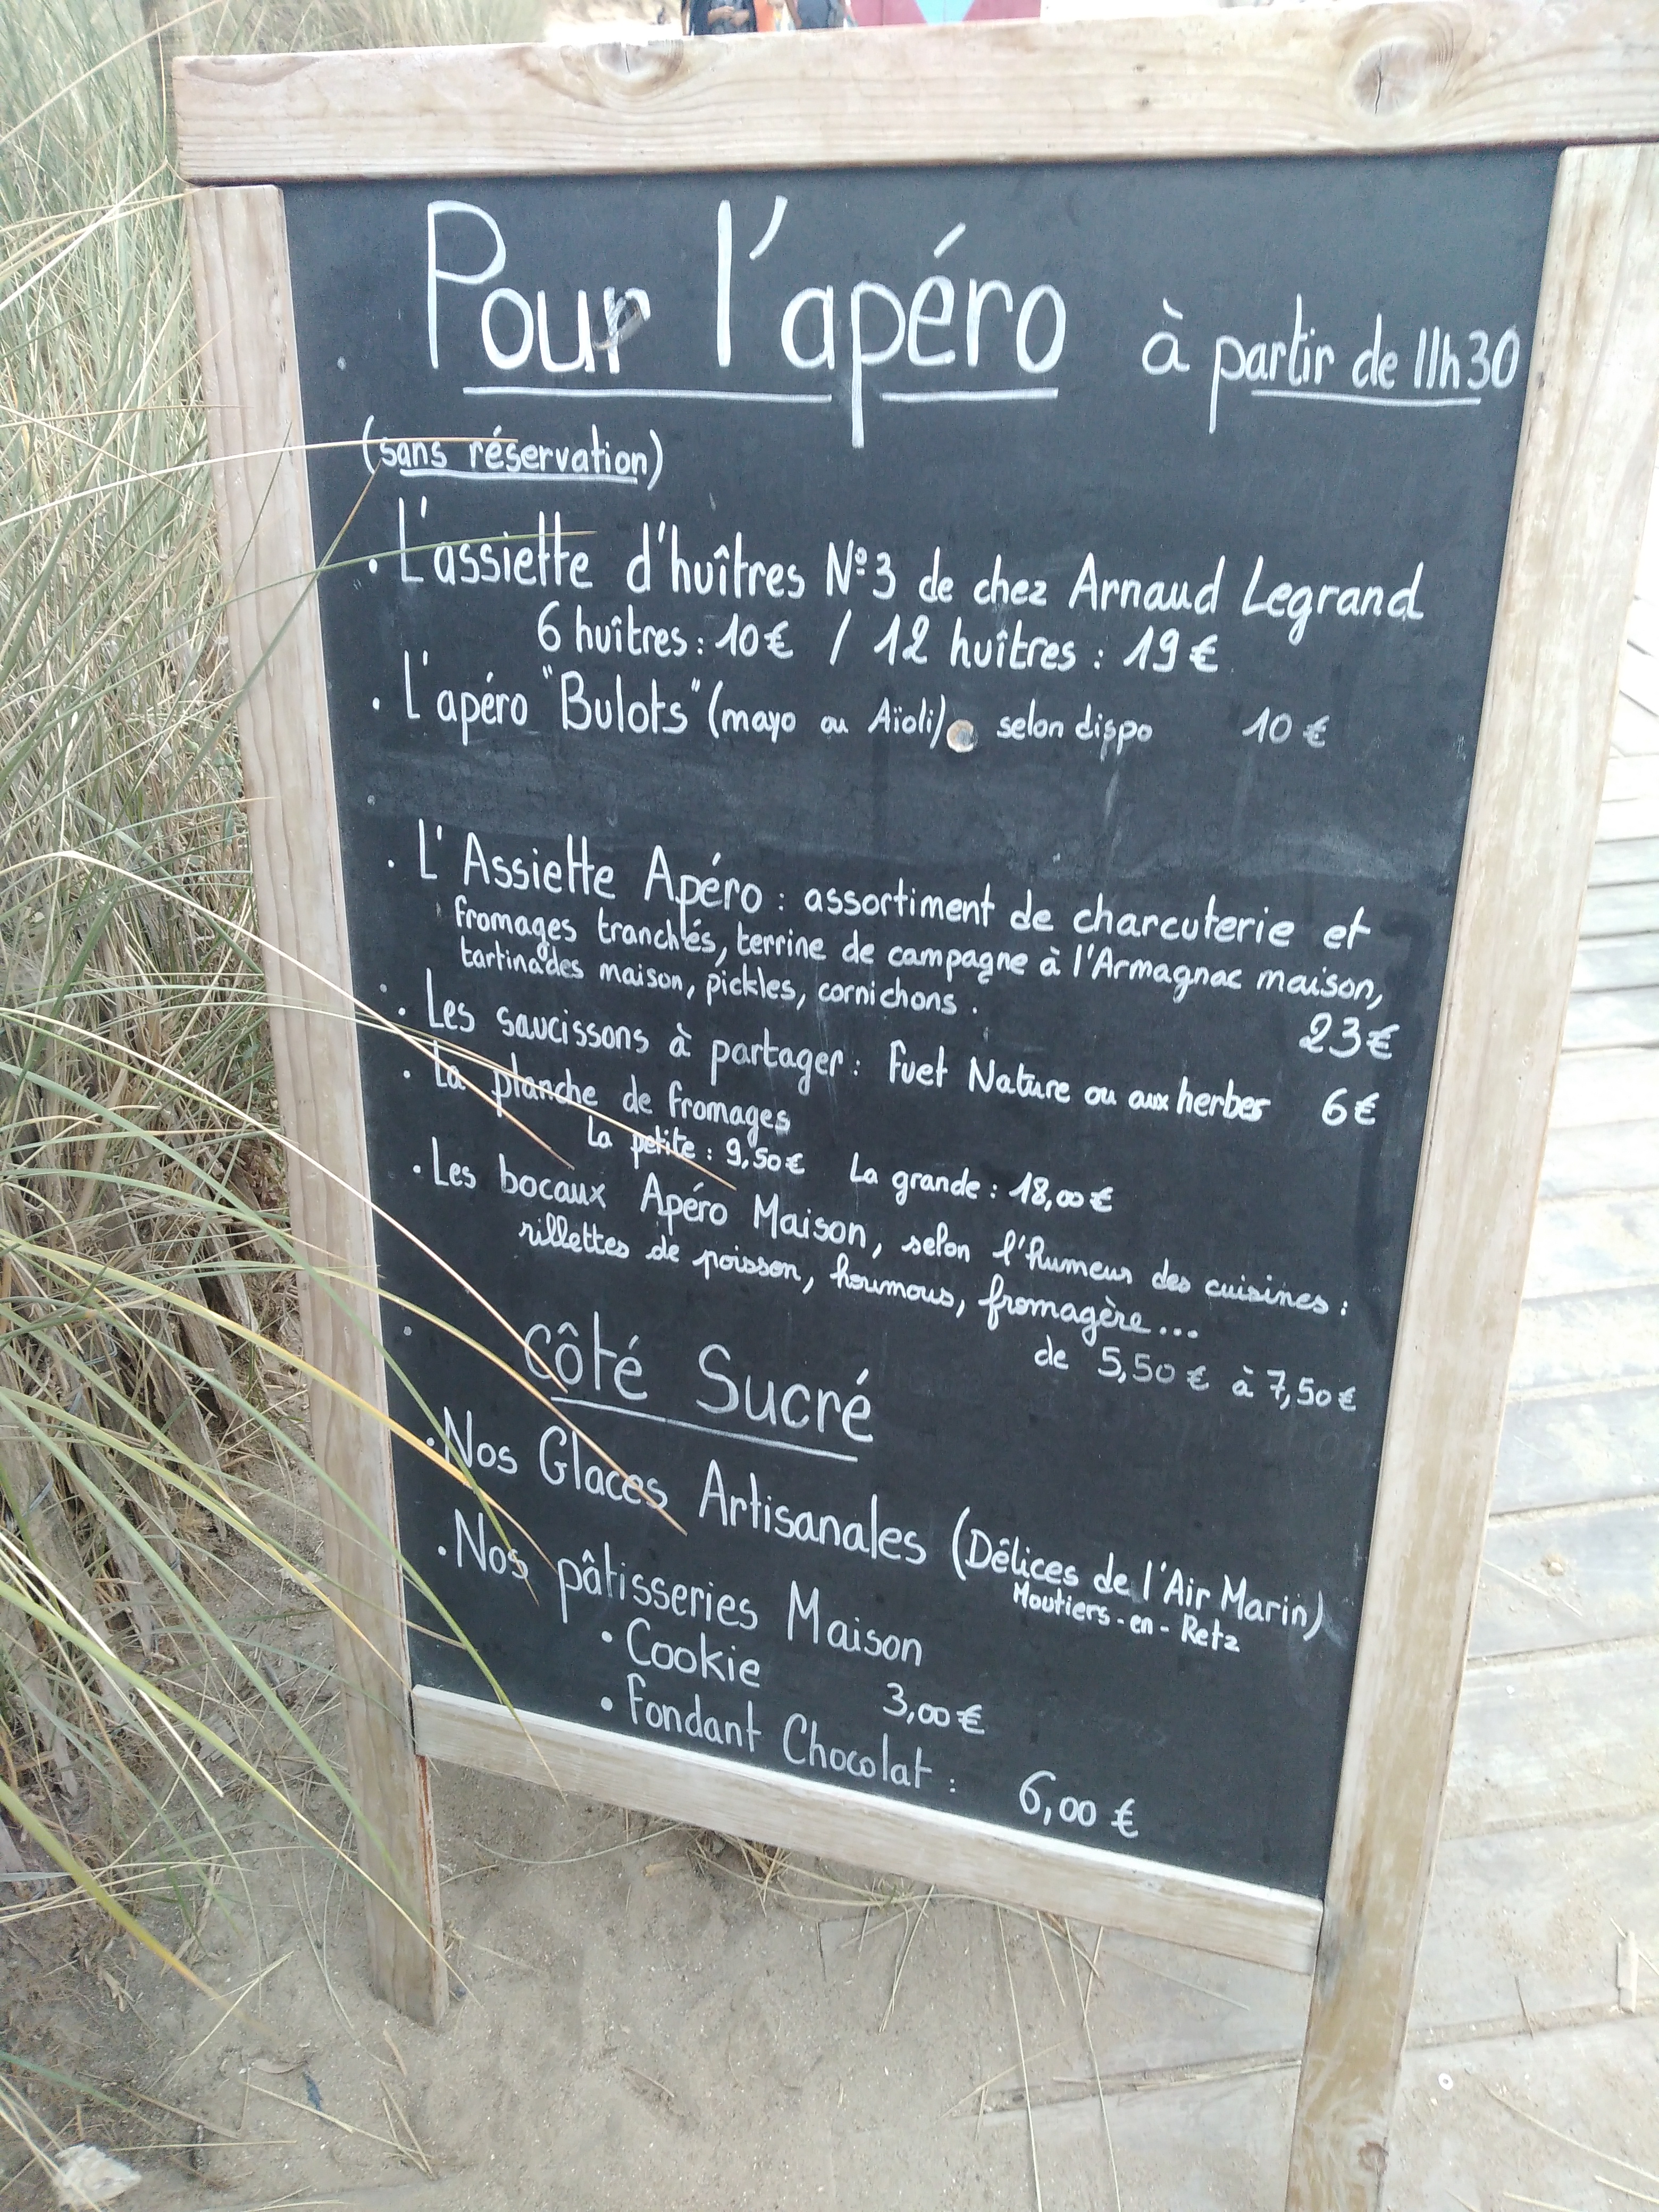 Pour l'apéro à partir de 11h30
(sans réservation)
. L'assiette d'huîtres N°3 de chez Arnaud Legrand
6 huîtres : 10€ / 12 huîtres : 19€
. L'apéro "Bulots" (mayo ou Aïoli) selon dispo 10€
. L'Assiette Apéro : assortiment de charcuterie et
fromages tranchés, terrine de campagne à l'Armagnac maison,
tartinades maison, pickles, cornichons.
23€
. Les saucissons à partager : Fuet Nature ou aux herbes 6€
. La planche de fromages
La petite : 9,50€ La grande : 18,00€
. Les bocaux Apéro Maison, selon l'humeur des cuisines :
rillettes de poisson, houmous, fromagère...
de 5,50€ à 7,50€
Côté Sucré
. Nos Glaces Artisanales (Délices de l'Air Marin)
Moutiers-en-Retz
. Nos pâtisseries Maison
• Cookie 3,00€
• Fondant Chocolat : 6,00€